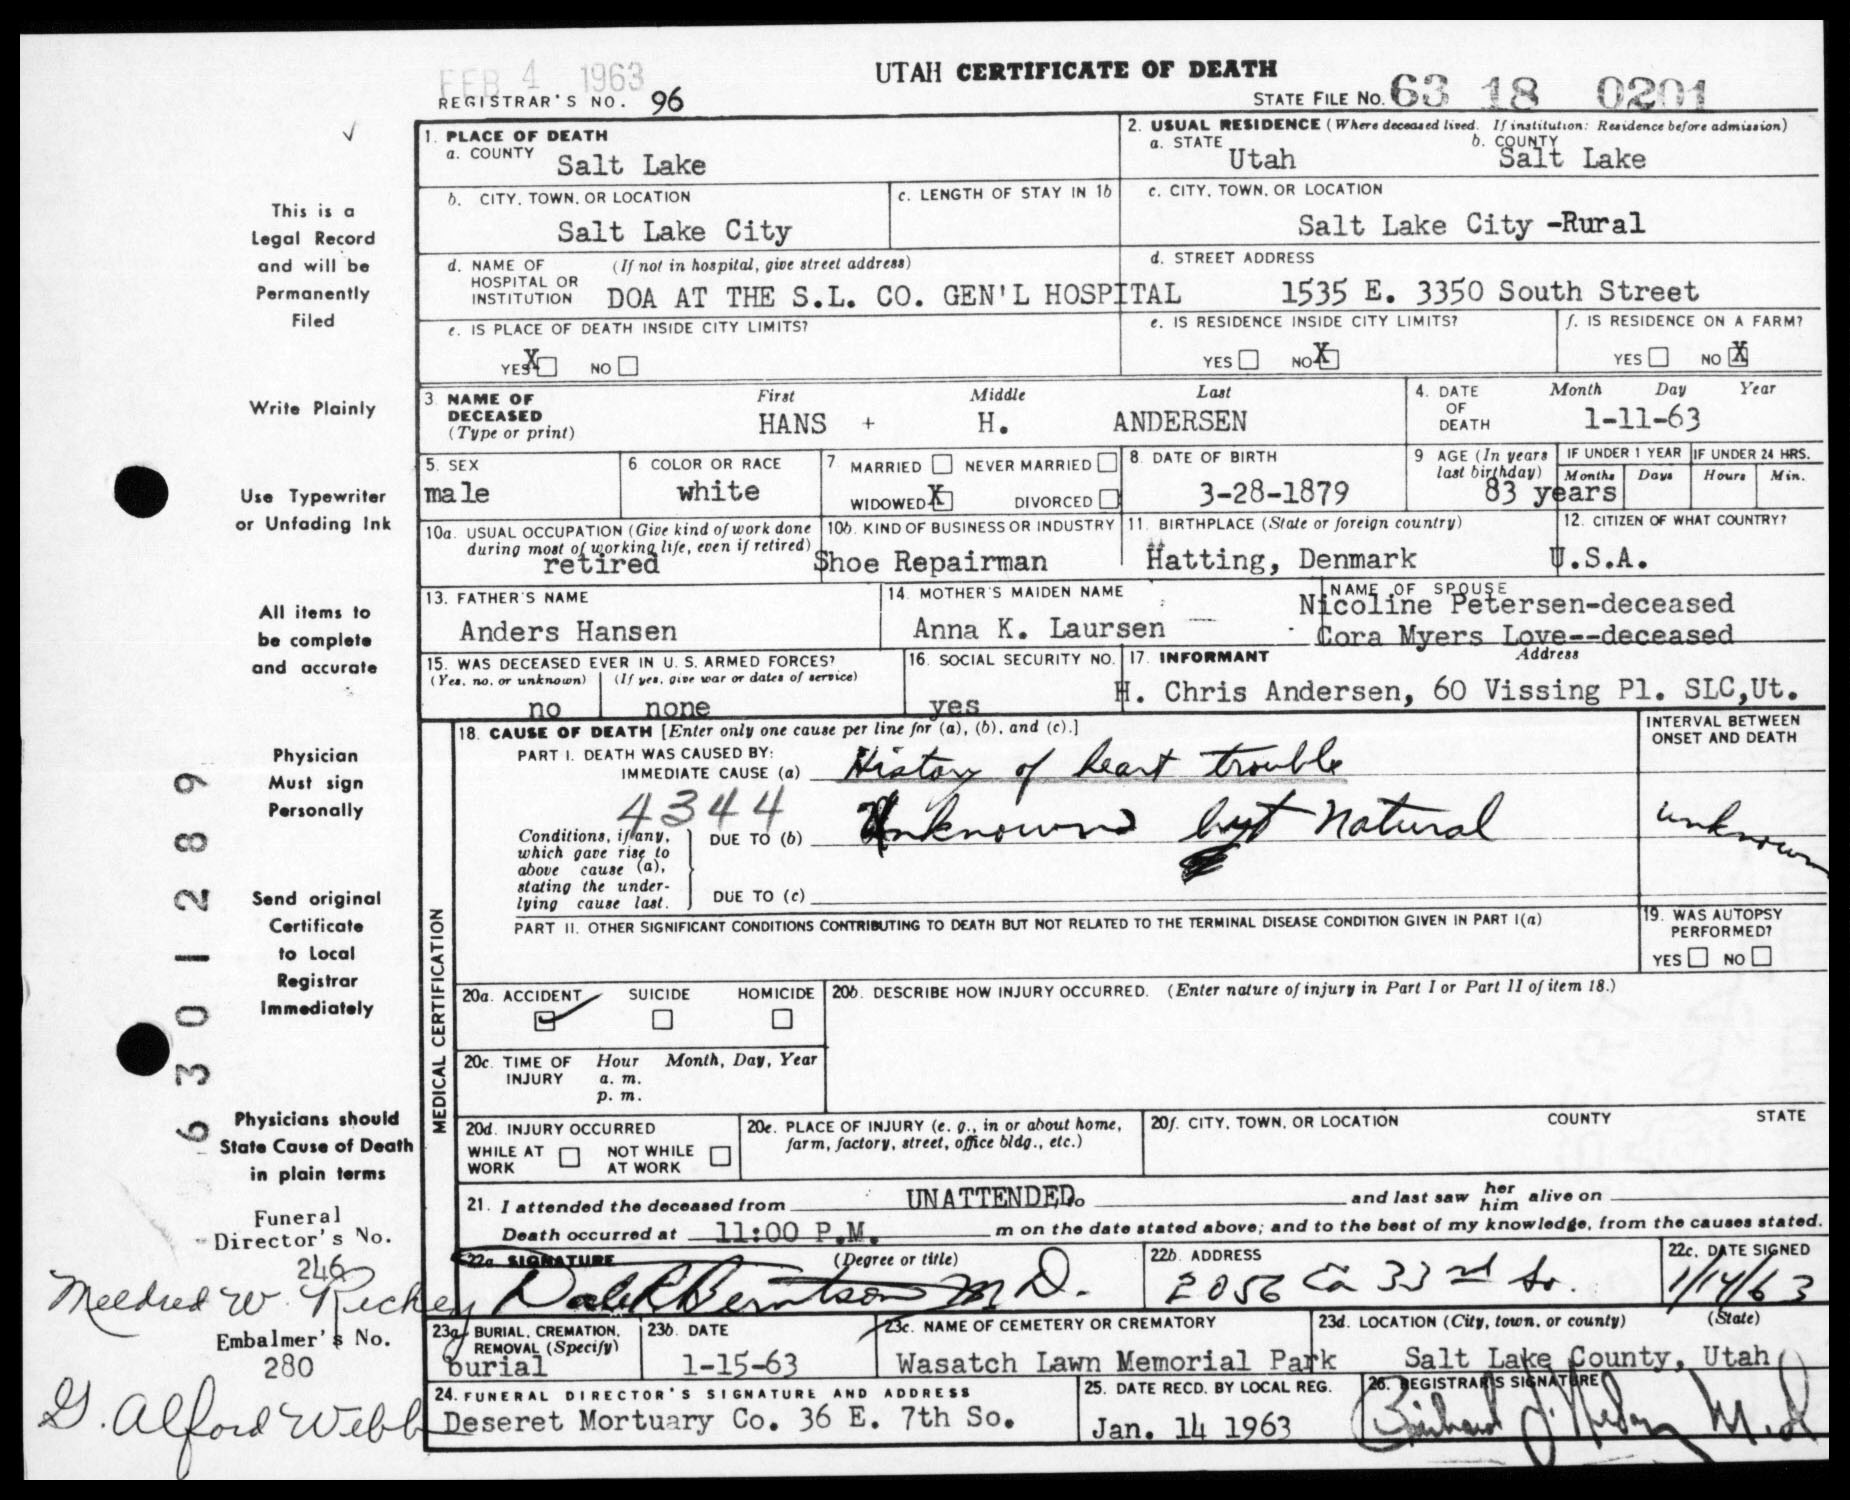 FEB 4 1963
UTAH CERTIFICATE OF DEATH
REGISTRAR'S NO. 96
STATE FILE NO. 63 18 0201
1. PLACE OF DEATH
a. COUNTY Salt Lake
2. USUAL RESIDENCE (Where deceased lived. If institution: Residence before admission)
a. STATE Utah b. COUNTY Salt Lake
b. CITY, TOWN, OR LOCATION Salt Lake City
c. LENGTH OF STAY IN 1b
c. CITY, TOWN, OR LOCATION Salt Lake City -Rural
d. NAME OF HOSPITAL OR INSTITUTION (If not in hospital, give street address)
DOA AT THE S.L. CO. GEN'L HOSPITAL
d. STREET ADDRESS
1535 E. 3350 South Street
e. IS PLACE OF DEATH INSIDE CITY LIMITS?
YES X NO
e. IS RESIDENCE INSIDE CITY LIMITS?
YES NO X
f. IS RESIDENCE ON A FARM?
YES NO X
3. NAME OF DECEASED (Type or print)
First Middle Last
HANS + H. ANDERSEN
4. DATE OF DEATH Month Day Year
1-11-63
5. SEX
male
6. COLOR OR RACE
white
7. MARRIED NEVER MARRIED
WIDOWED X DIVORCED
8. DATE OF BIRTH
3-28-1879
9. AGE (In years last birthday)
83 years
IF UNDER 1 YEAR
Months Days
IF UNDER 24 HRS.
Hours Min.
10a. USUAL OCCUPATION (Give kind of work done during most of working life, even if retired)
retired
10b. KIND OF BUSINESS OR INDUSTRY
Shoe Repairman
11. BIRTHPLACE (State or foreign country)
Hatting, Denmark
12. CITIZEN OF WHAT COUNTRY?
U.S.A.
13. FATHER'S NAME
Anders Hansen
14. MOTHER'S MAIDEN NAME
Anna K. Laursen
NAME OF SPOUSE
Nicoline Petersen-deceased
Cora Myers Love--deceased
15. WAS DECEASED EVER IN U. S. ARMED FORCES?
(Yes, no, or unknown) (If yes, give war or dates of service)
no none
16. SOCIAL SECURITY NO.
yes
17. INFORMANT Address
H. Chris Andersen, 60 Vissing Pl. SLC,Ut.
18. CAUSE OF DEATH [Enter only one cause per line for (a), (b), and (c).]
INTERVAL BETWEEN ONSET AND DEATH
PART I. DEATH WAS CAUSED BY:
IMMEDIATE CAUSE (a) History of heart trouble
4344
Conditions, if any, which gave rise to above cause (a), stating the underlying cause last.
DUE TO (b) Unknown but Natural unknown
DUE TO (c)
PART II. OTHER SIGNIFICANT CONDITIONS CONTRIBUTING TO DEATH BUT NOT RELATED TO THE TERMINAL DISEASE CONDITION GIVEN IN PART I(a)
19. WAS AUTOPSY PERFORMED?
YES NO
MEDICAL CERTIFICATION
20a. ACCIDENT SUICIDE HOMICIDE
20b. DESCRIBE HOW INJURY OCCURRED. (Enter nature of injury in Part I or Part II of item 18.)
20c. TIME OF INJURY Hour Month, Day, Year
a. m.
p. m.
20d. INJURY OCCURRED
WHILE AT WORK NOT WHILE AT WORK
20e. PLACE OF INJURY (e. g., in or about home, farm, factory, street, office bldg., etc.)
20f. CITY, TOWN, OR LOCATION COUNTY STATE
21. I attended the deceased from UNATTENDED. and last saw her him alive on
Death occurred at 11:00 P.M. m on the date stated above; and to the best of my knowledge, from the causes stated.
22a. SIGNATURE (Degree or title)
Dale R Berntson M D.
22b. ADDRESS
2056 Ea 33rd So.
22c. DATE SIGNED
1/14/63
23a. BURIAL, CREMATION, REMOVAL (Specify)
burial
23b. DATE
1-15-63
23c. NAME OF CEMETERY OR CREMATORY
Wasatch Lawn Memorial Park
23d. LOCATION (City, town, or county) (State)
Salt Lake County, Utah
24. FUNERAL DIRECTOR'S SIGNATURE AND ADDRESS
Deseret Mortuary Co. 36 E. 7th So.
25. DATE RECD. BY LOCAL REG.
Jan. 14 1963
26. REGISTRAR'S SIGNATURE
This is a
Legal Record
and will be
Permanently
Filed
Write Plainly
Use Typewriter
or Unfading Ink
All items to
be complete
and accurate
Physician
Must sign
Personally
Send original
Certificate
to Local
Registrar
Immediately
Physicians should
State Cause of Death
in plain terms
6301289
Funeral
Director's No.
246
Mildred W. Rickey
Embalmer's No.
280
G. Alford Webb